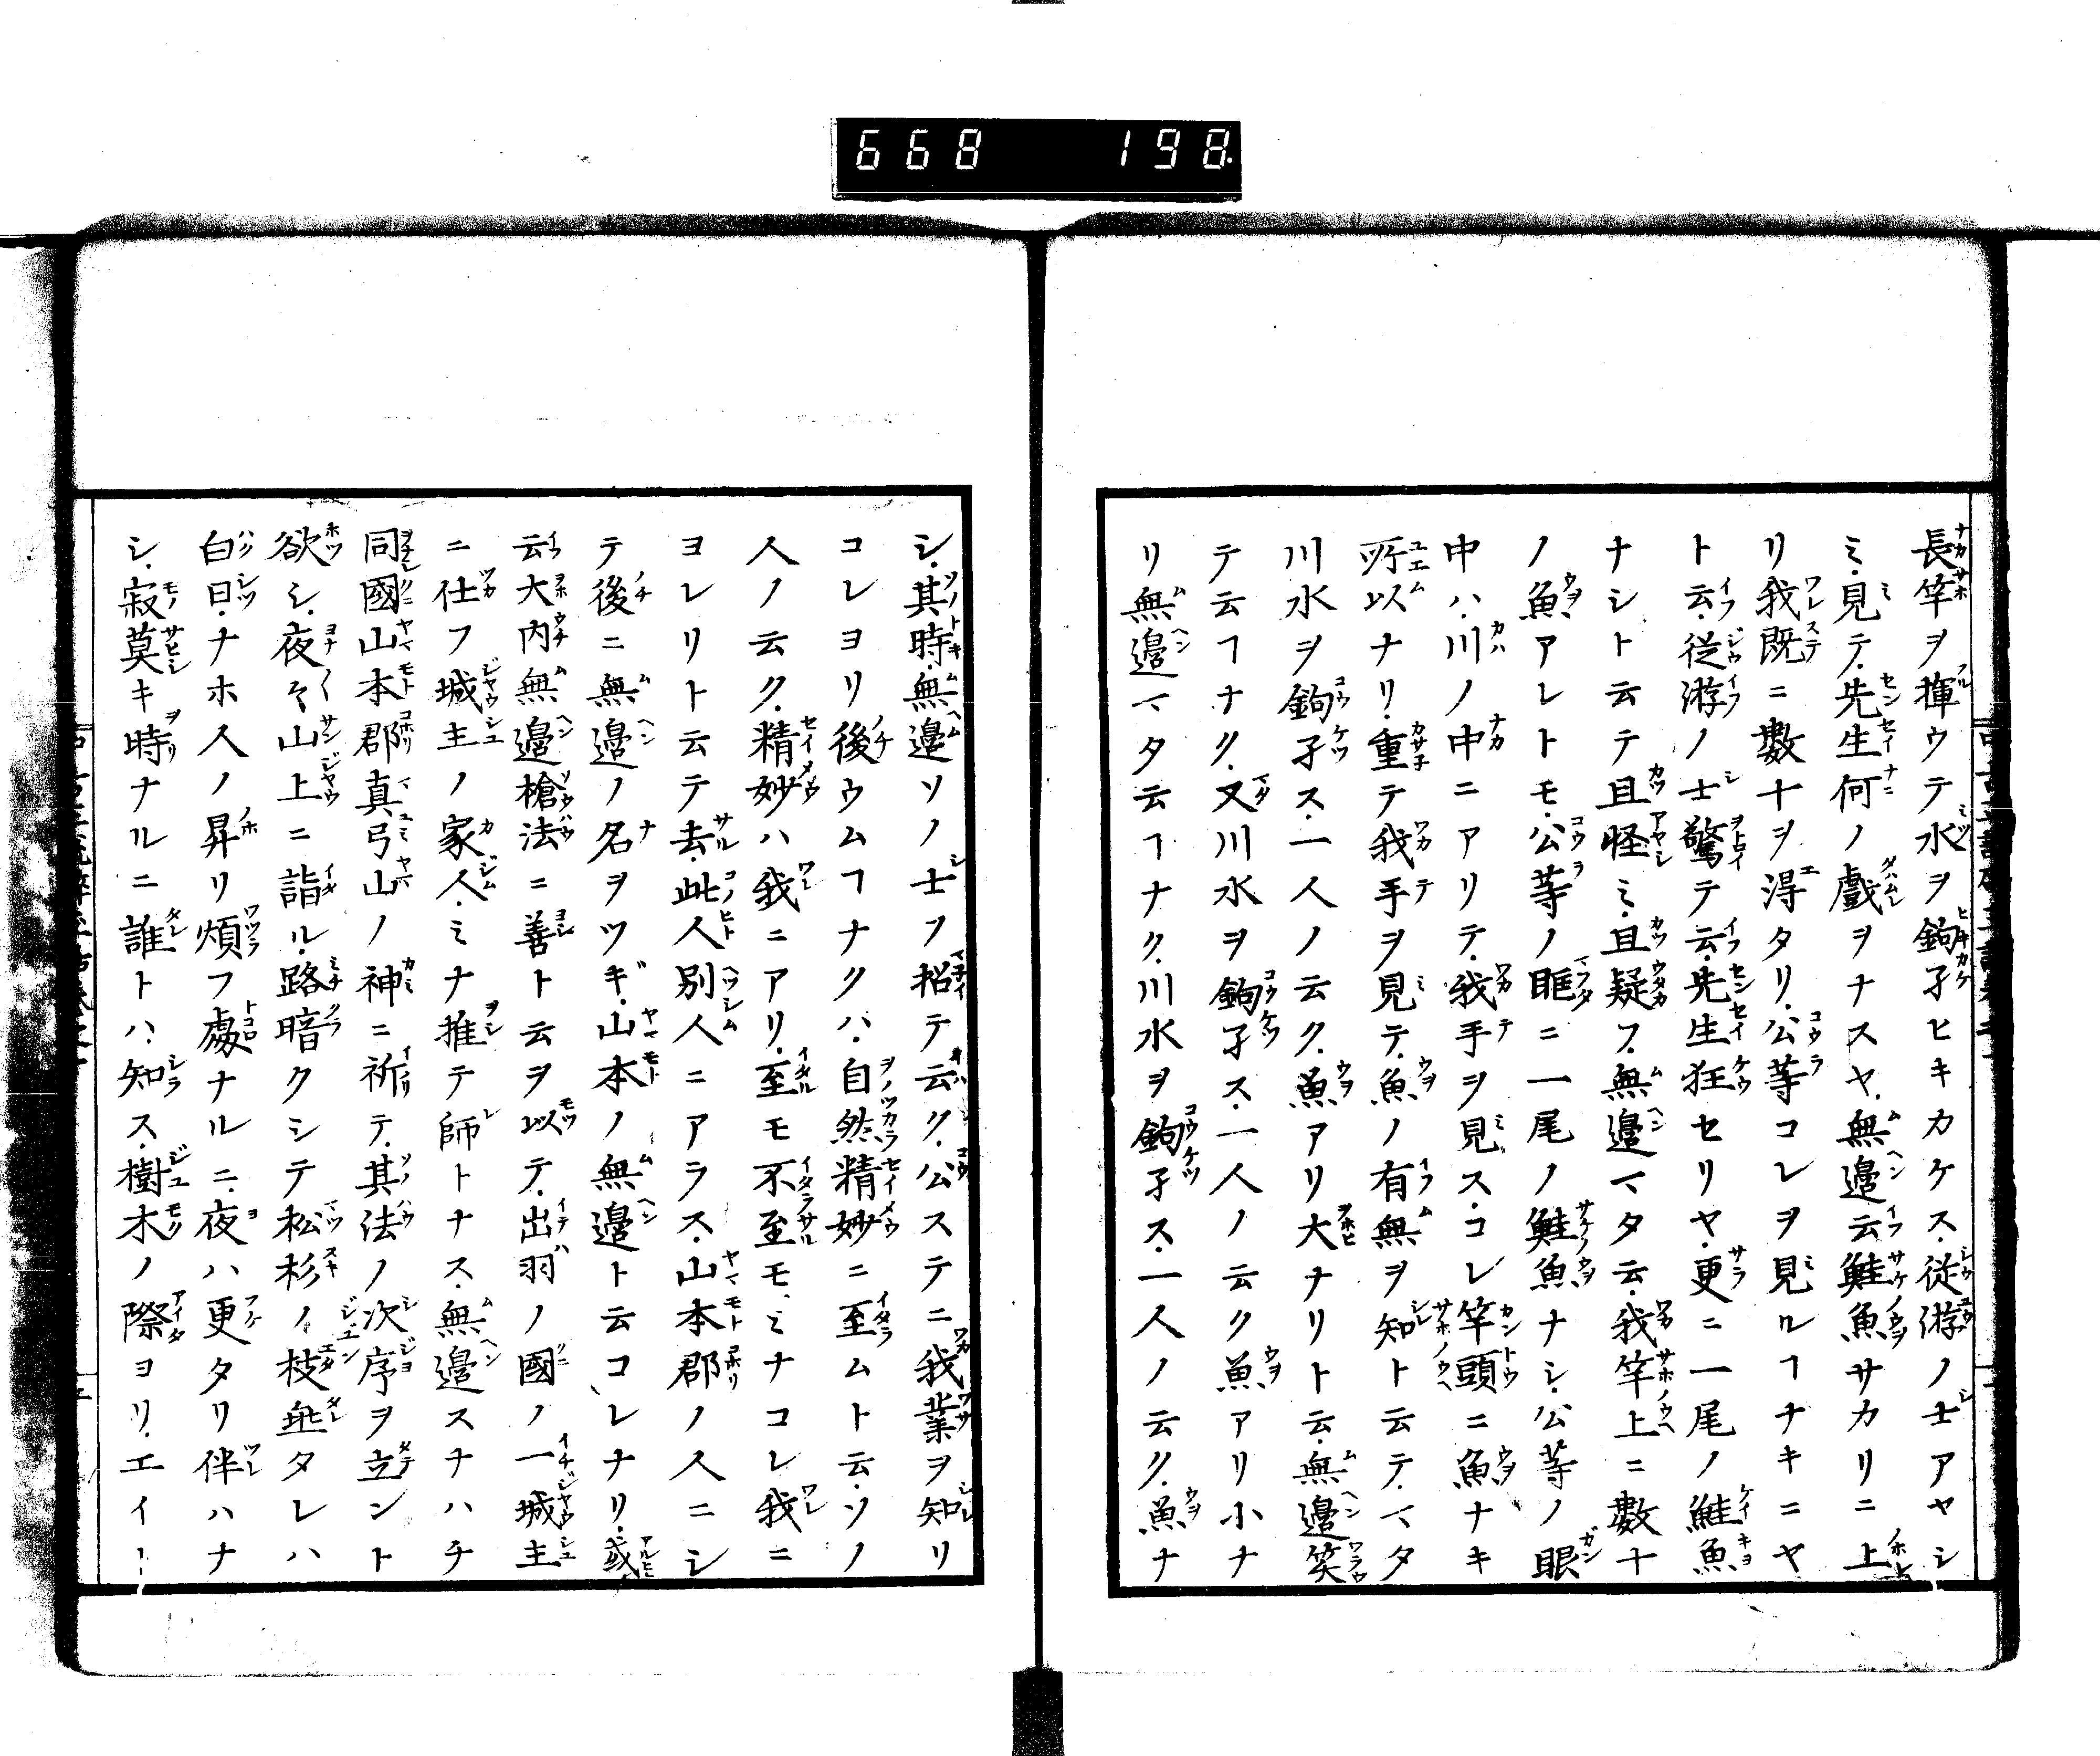 668 198
長竿ヲ揮ウテ水ヲ鉤孑ヒキカケス従游ノ士アヤシ
ミ見テ先生何ノ戯ヲナスヤ無邉云鮭魚サカリニ上
リ我既ニ數十ヲ淂タリ公等コレヲ見ルヿナキニヤ
ト云従游ノ士驚テ云先生狂セリヤ更ニ一尾ノ鮭魚
ナシト云テ且怪ミ且疑フ無邉マタ云我竿上ニ數十
ノ魚アレトモ公等ノ眶ニ一尾ノ鮭魚ナシ公等ノ眼
中ハ川ノ中ニアリテ我手ヲ見スコレ竿頭ニ魚ナキ
所以ナリ重テ我手ヲ見テ魚ノ有無ヲ知ト云テマタ
川水ヲ鉤孑ス一人ノ云ク魚アリ大ナリト云無邉笑
テ云フナク又川水ヲ鉤孑ス一人ノ云ク魚アリ小ナ
リ無邉マタ云ヿナク川水ヲ鉤孑ス一人ノ云ク魚ナ
シ其時無邉ソノ士フ招テ云ク公ステニ我業ヲ知リ
コレヨリ後ウムヿナクハ自然精妙ニ至ムト云ソノ
人ノ云ク精妙ハ我ニアリ至モ不至モミナコレ我ニ
ヨレリト云テ去此人別人ニアラス山本郡ノ人ニシ
テ後ニ無邉ノ名ヲツギ山本ノ無邉ト云コレナリ或
云大内無邉槍法ニ善ト云ヲ以テ出羽ノ國ノ一城主
ニ仕フ城主ノ家人ミナ推テ師トナス無邉スナハチ
同國山本郡真弓山ノ神ニ祈テ其法ノ次序ヲ立ント
欲シ夜々山上ニ詣ル路暗クシテ松杉ノ枝垂タレハ
白日ナホ人ノ昇リ煩フ處ナルニ夜ハ更タリ伴ハナ
シ寂莫キ時ナルニ誰トハ知ス樹木ノ際ヨリエイー